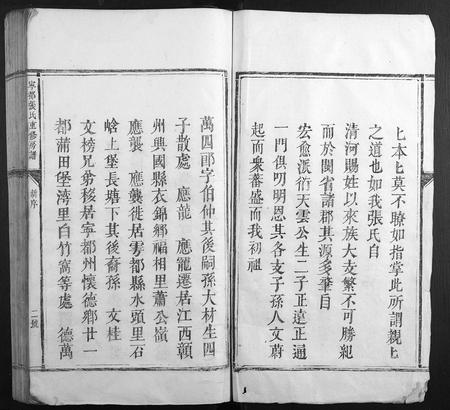 上本上莫不瞭如指掌此所謂親上
之道也如我張氏自
清河賜姓以來族大支繁不可勝紀
而於閩省諸郡其源多肇自
宏愈派衍天雲公生二子正遠正通
一門俱叨明恩其各支子孫人文蔚
起而衆蕃盛而我初祖
萬四郎字伯仲其後嗣孫大材生四
子散處 應龍 應寵遷居江西贛
州興國縣衣錦鄉福相里蕭公嶺
應襲 應龔徙居雩都縣水頭里石
峆上堡長塘下其後裔孫 文桂
文榜兄弟移居寧都州懷德鄉廿一
都蒲田堡湾里白竹窩等處 德萬
寧都張氏重修房譜
新序
二號